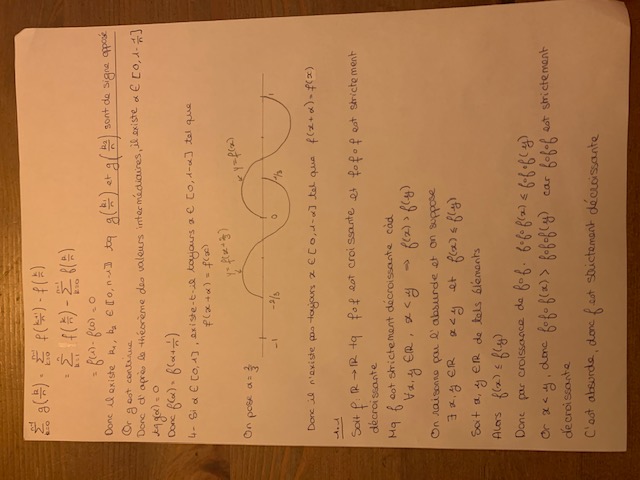 ∑_{k=0}^{n-1} g(k/n) = ∑_{k=0}^{n-1} f((k+1)/n) - f(k/n)
= ∑_{k=1}^{n} f(k/n) - ∑_{k=0}^{n-1} f(k/n)
= f(1) - f(0) = 0
Donc il existe k₁, k₂ ∈ [0, n-1] tq g(k₁/n) et g(k₂/n) sont de signe opposé
Or g est continue
Donc d'après le théorème des valeurs intermédiaires, il existe α ∈ [0, 1-1/n]
tq g(α) = 0
Donc f(α) = f(α+1/n)
4- Si α ∈ [0,1], existe-t-il toujours x ∈ [0, 1-α] tel que
f(x+α) = f(x)
y = f(x+2/3)
y = f(x)
On pose α = 2/3
-1 -2/3 0 1/3 1
Donc il n'existe pas toujours x ∈ [0, 1-α] tel que f(x+α) = f(x)
1.1
Soit f: ℝ → ℝ tq f∘f est croissante et f∘f∘f est strictement
décroissante
Mq f est strictement décroissante càd
∀x, y ∈ ℝ, x < y ⇒ f(x) > f(y)
On raisonne par l'absurde et on suppose
∃ x, y ∈ ℝ x < y et f(x) ≤ f(y)
Soit x, y ∈ ℝ de tels éléments
Alors f(x) ≤ f(y)
Donc par croissance de f∘f. f∘f∘f(x) ≤ f∘f∘f(y)
Or x < y, donc f∘f∘f(x) > f∘f∘f(y) car f∘f∘f est strictement
décroissante
C'est absurde, donc f est strictement décroissante